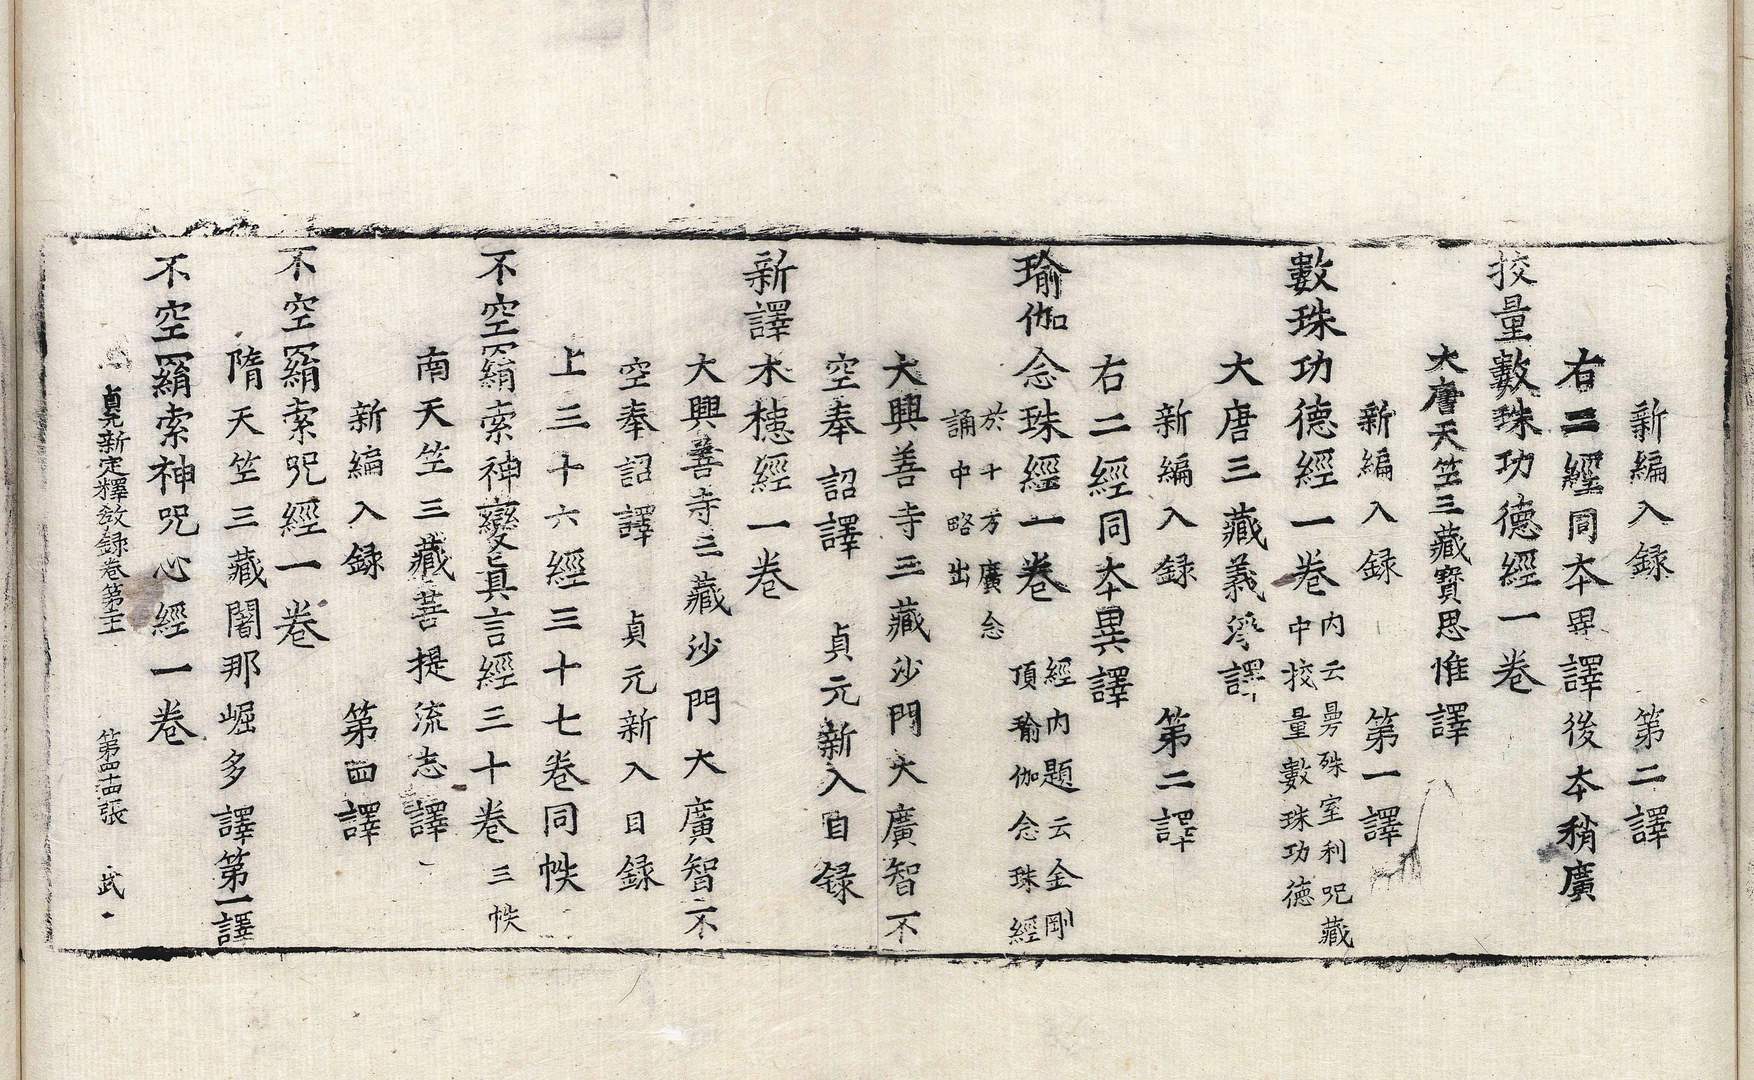 新編入録　第二譯
右三經同本異譯後本稍廣
挍量數珠功德經一卷
大唐天竺三藏寳思惟譯
新編入録　第一譯
數珠功德經一卷
内云曼殊室利咒藏
中挍量數珠功德
大唐三藏義淨譯
新編入録　第二譯
右二經同本異譯
瑜伽念珠經一卷
經内題云金剛
頂瑜伽念珠經
於十万廣念
誦中略出
大興善寺三藏沙門大廣智不
空奉詔譯　貞元新入目録
新譯木槵經一卷
大興善寺三藏沙門大廣智不
空奉詔譯　貞元新入目録
上三十六經三十七卷同帙
不空羂索神變真言經三十卷
三帙
南天竺三藏菩提流志譯
新編入録　第四譯
不空羂索咒經一卷
隋天竺三藏闍那崛多譯第一譯
不空羂索神咒心經一卷
貞元新定釋教録卷第　第四十四張　武